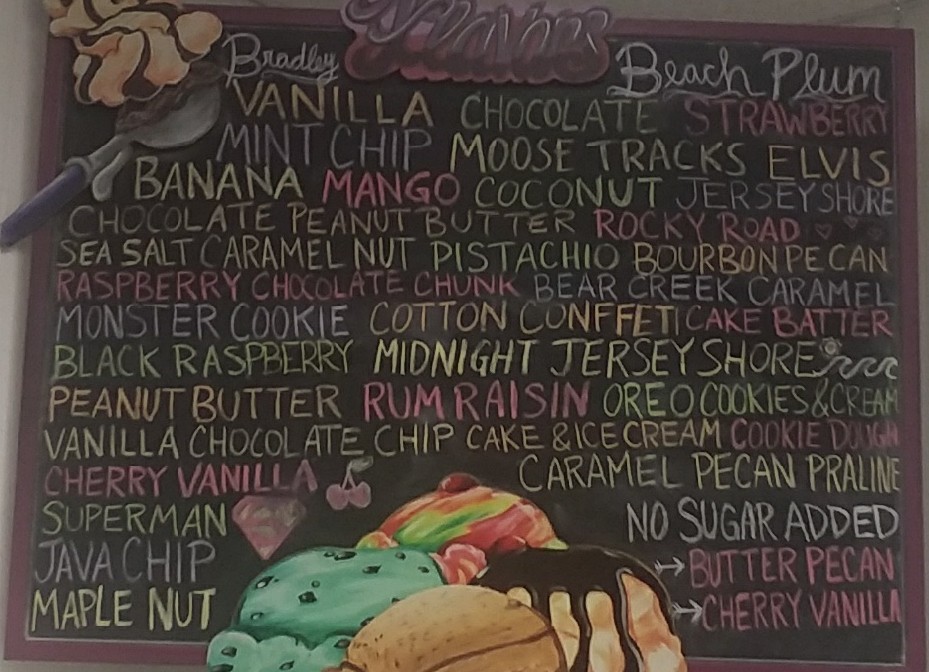 Flavors
Bradley Beach Plum
VANILLA CHOCOLATE STRAWBERRY
MINT CHIP MOOSE TRACKS ELVIS
BANANA MANGO COCONUT JERSEY SHORE
CHOCOLATE PEANUT BUTTER ROCKY ROAD
SEA SALT CARAMEL NUT PISTACHIO BOURBON PECAN
RASPBERRY CHOCOLATE CHUNK BEAR CREEK CARAMEL
MONSTER COOKIE COTTON CONFFETI CAKE BATTER
BLACK RASPBERRY MIDNIGHT JERSEY SHORE
PEANUT BUTTER RUM RAISIN OREO COOKIES & CREAM
VANILLA CHOCOLATE CHIP CAKE & ICE CREAM COOKIE DOUGH
CHERRY VANILLA CARAMEL PECAN PRALINE
SUPERMAN NO SUGAR ADDED
JAVA CHIP → BUTTER PECAN
MAPLE NUT → CHERRY VANILLA